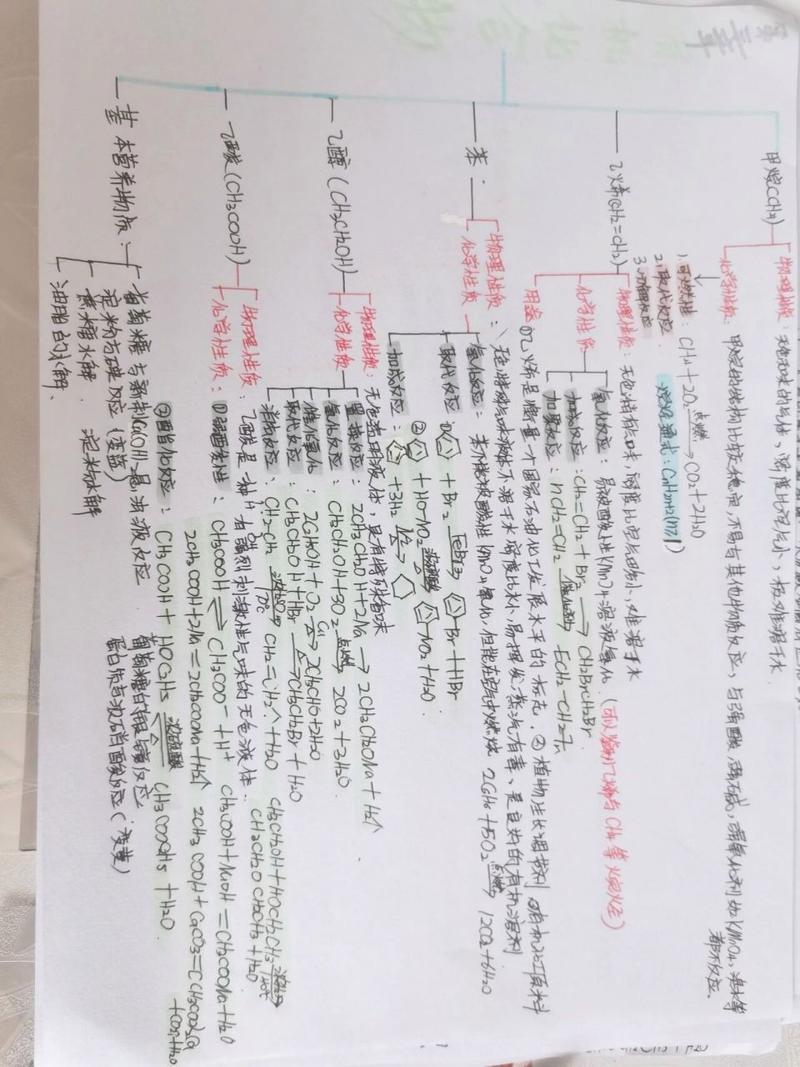 第三章 有机化合物
甲烷(CH4)
物理性质：无色无味的气体，密度比空气小，极难溶于水
化学性质：甲烷的结构比较稳定，不易与其他物质反应，与强酸，强碱，强氧化剂如KMnO4，溴水等都不反应。
1.可燃性：CH4+2O2 点燃→ CO2+2H2O
2.取代反应
烷烃通式：CnH2n+2(n≥1)
乙烯(CH2=CH2)
物理性质：无色稍有气味，密度比空气略小，难溶于水
化学性质
氧化反应：易被酸性KMnO4溶液氧化（可以鉴别乙烯与CH4等烷烃）
加成反应：CH2=CH2+Br2→CH2BrCH2Br
加聚反应：nCH2=CH2 催化剂→ [CH2-CH2]n
用途
①乙烯是衡量一个国家石油化工发展水平的标志。②植物生长调节剂 ③有机化工原料
苯：
物理性质：无色特殊气味液体不溶于水密度比水小，易挥发，蒸汽有毒，是良好的有机溶剂
化学性质
氧化反应：苯不能被酸性KMnO4氧化，但能在空气中燃烧 2C6H6+15O2 点燃→ 12CO2+6H2O
取代反应 ① ⌬+Br2 FeBr3→ ⌬Br+HBr
② ⌬+HO-NO2 浓硫酸△→ ⌬NO2+H2O
加成反应：⌬+3H2 Ni△→ ⬡
乙醇(CH3CH2OH)
物理性质：无色透明液体，具有特殊香味
化学性质
置换反应：2CH3CH2OH+2Na→2CH3CH2ONa+H2↑
氧化反应：CH3CH2OH+3O2 点燃→ 2CO2+3H2O
催化氧化：2C2H5OH+O2 Cu△→ 2CH3CHO+2H2O
取代反应：CH3CH2OH+HBr △→ CH3CH2Br+H2O
CH3CH2OH+HOCH2CH3 浓硫酸→
CH3CH2OCH2CH3+H2O
消去反应：CH2-CH2 浓硫酸 170℃→ CH2=CH2↑+H2O
H OH
乙酸(CH3COOH)
物理性质：乙酸是一种有强烈刺激性气味的无色液体．
化学性质：
①弱酸性：CH3COOH⇌CH3COO⁻+H⁺ CH3COOH+NaOH=CH3COONa+H2O
2CH3COOH+2Na=2CH3COONa+H2↑ 2CH3COOH+CaCO3=(CH3COO)2Ca+CO2↑+H2O
②酯化反应：CH3COOH+HOC2H5 浓硫酸△⇌ CH3COOC2H5+H2O
基本营养物质：
葡萄糖与新制Cu(OH)2悬浊液反应 葡萄糖白银镜反应
淀粉与碘反应（变蓝） 蛋白质与浓硝酸反应（变黄）
蔗糖水解 淀粉水解
油脂的水解、